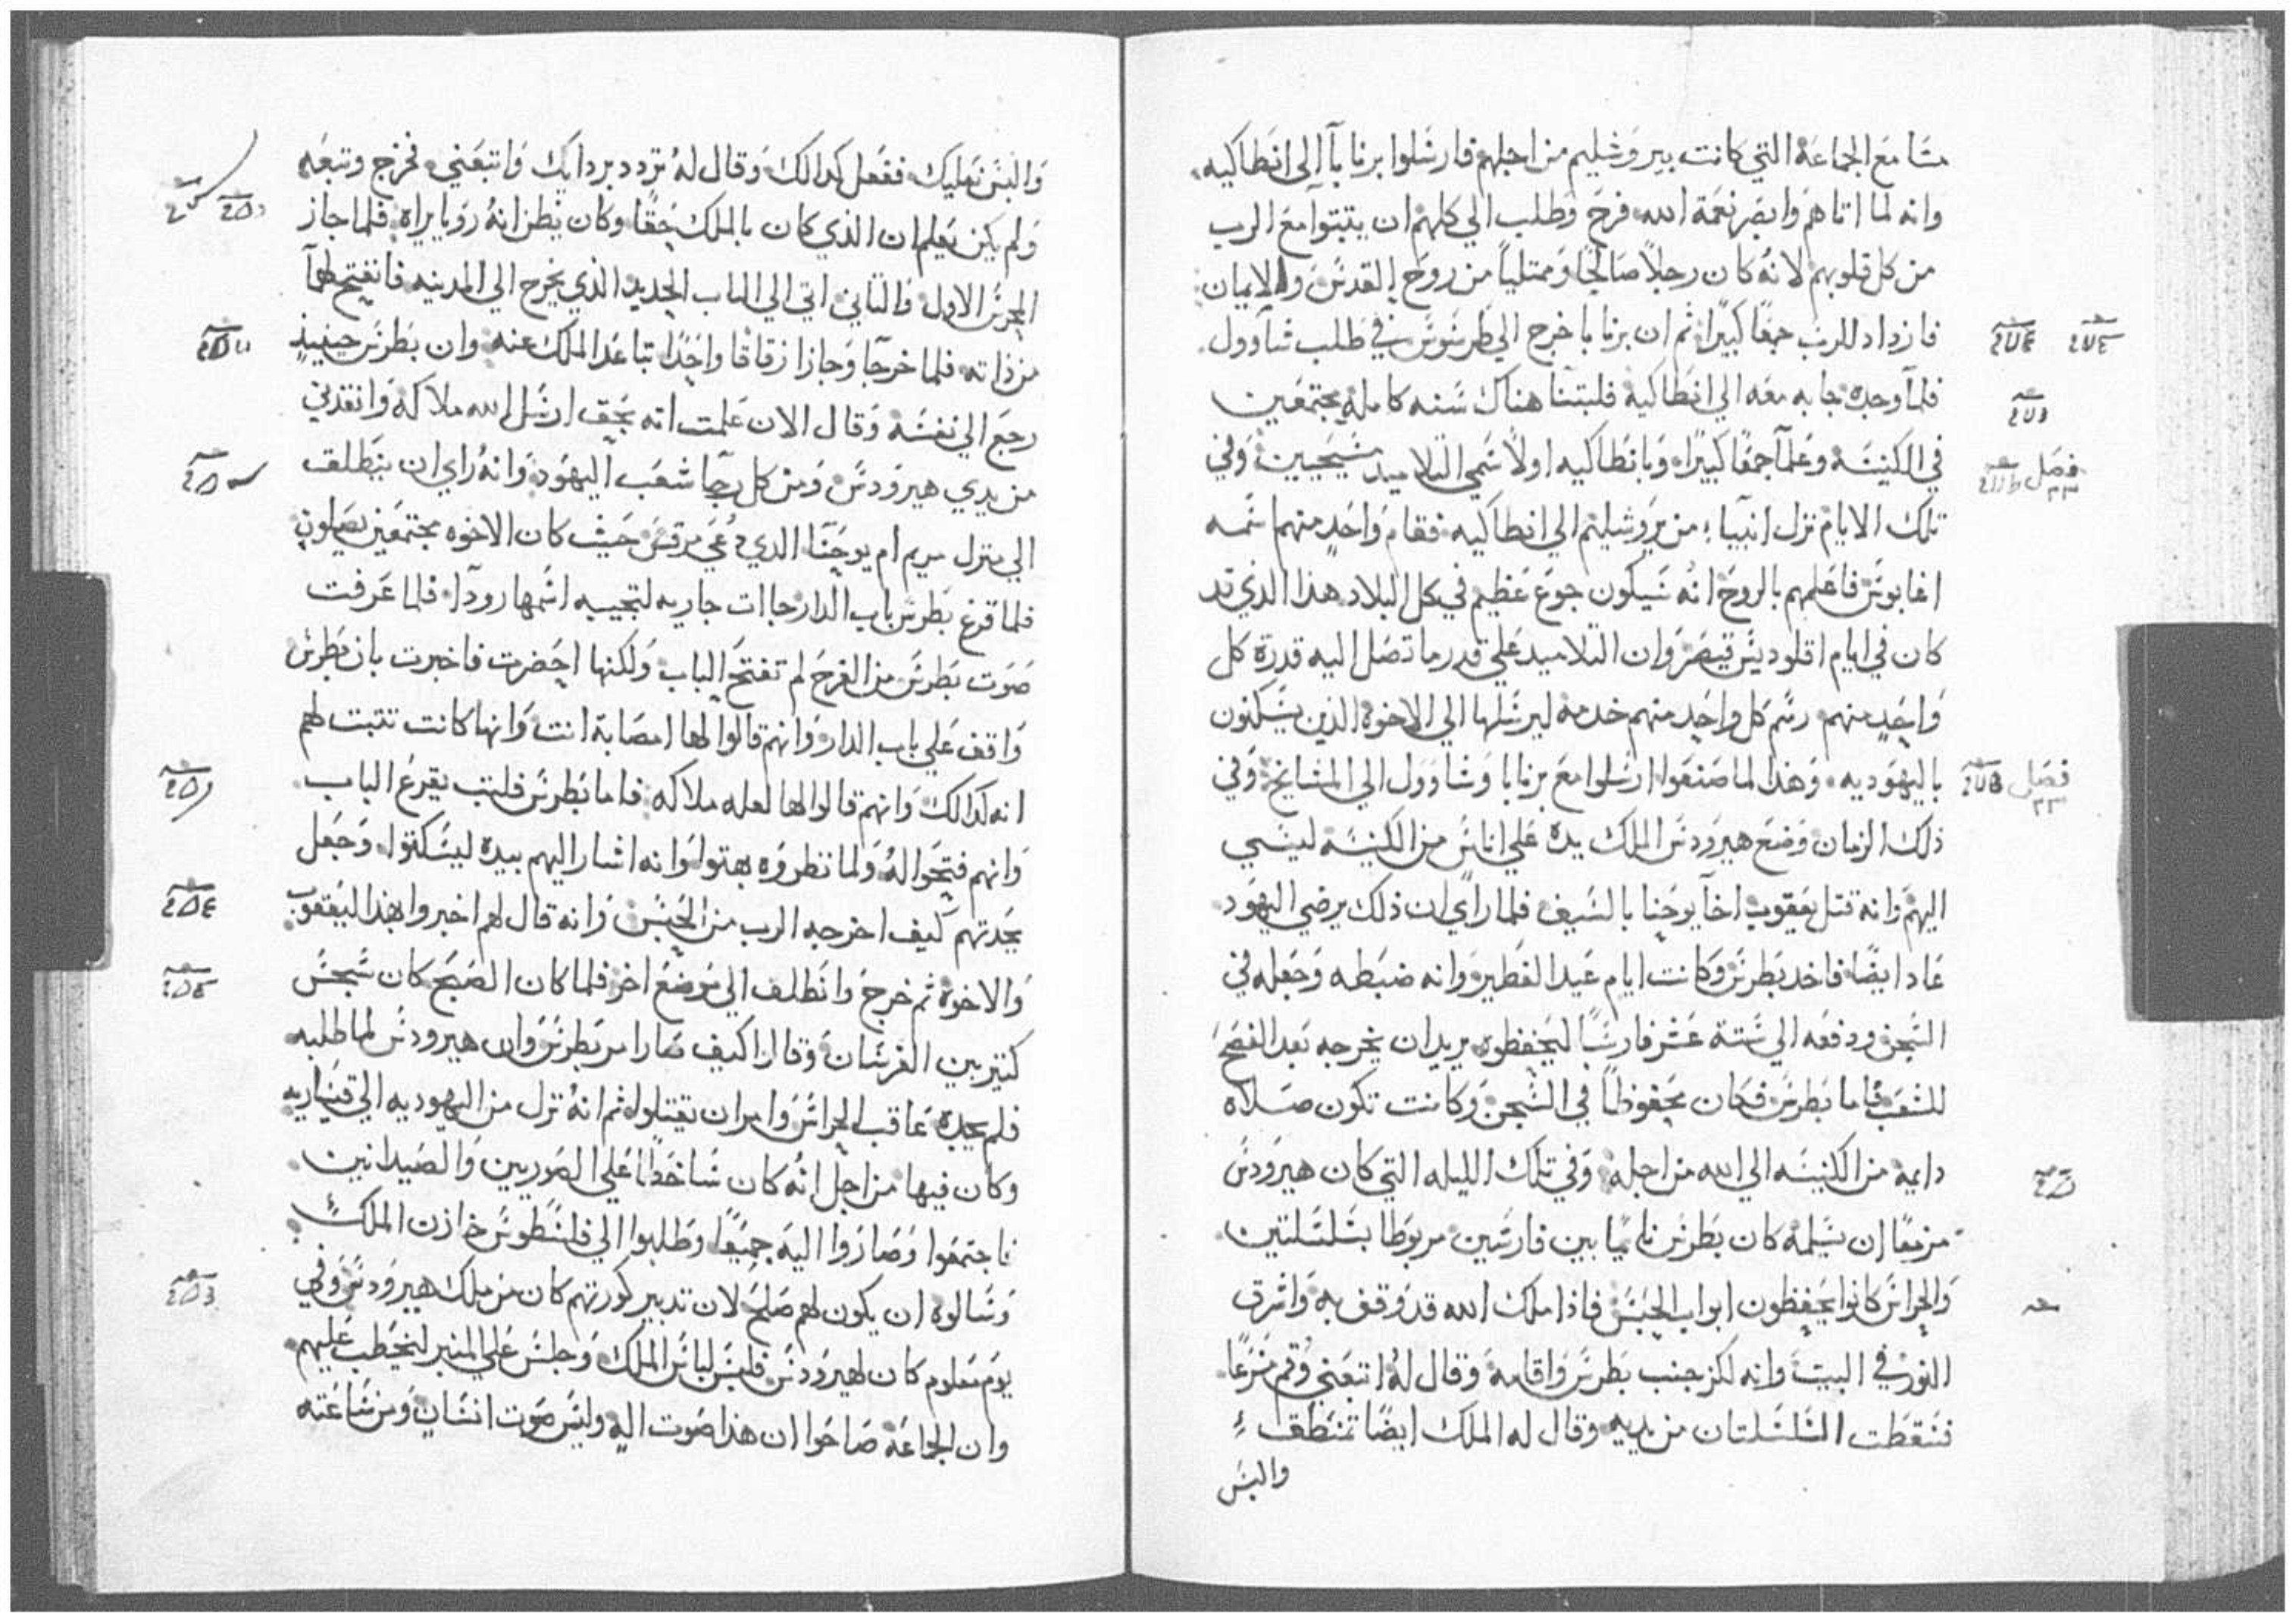 مسامع الجماعة التي كانت بيروشليم من اجلهم فارسلوا برنابا الى انطاكيه
وانه لما اتاهم وابصر نعمة الله فرح وطلب الي كلهم ان يتبتوا مع الرب
من كل قلوبهم لانه كان رجلاً صالحًا وممتلياً من روح القدس والايمان
فازداد للرب جمعًا كبيرًا ثم ان برنابا خرج الي طرسوس في طلب شاوول
فلما وجده جا به معه الي انطاكية فلبتنا هناك سنه كامله مجتمعين
في الكنيسة وعلما جمعًا كبيرًا وبانطاكيه اولاً سمي التلاميد مسيحيين وفي
تلك الايام نزل انبيا من يروشليم الي انطاكيه فقام واحد منهما سمه
اغابوس فاعلمهم بالروح انه سيكون جوع عظيم في كل البلاد هذا الذي
كان في ايام اقلوديس قيصر وان التلاميد علي قدر ما تصل اليه قدرة كل
واحد منهم رسم كل واحد منهم خدمه ليرسلها الي الاخوة الذين يسكنون
باليهوديه وهذا لما صنعوا ارسلوا مع برنابا وشاوول الي المشايخ وفي
ذلك الزمان وضع هيرودس الملك يده علي اناس من الكنيسه ليسي
اليهم وانه قتل يعقوب اخا يوحنا بالسيف فلما راي ان ذلك يرضي اليهود
عاد ايضًا فاخد بطرس وكانت ايام عيد الفطير وانه ضبطه وجعله في
السجن ودفعه الي ستة عشر فارسًا ليحفظوه يريد ان يخرجه بعد الفصح
للشعب فاما بطرس فكان محفوظًا في السجن وكانت تكون صلاه
دايمة من الكنيسه الي الله من اجله وفي تلك الليله التي كان هيرودس
مزمعًا ان يسلمه كان بطرس نايمًا بين فارسين مربوطًا بسلسلتين
والحراس كانوا يحفظون ابواب الحبس فاذا ملاك الله قد وقف به واشرق
النور في البيت وانه لكز جنب بطرس واقامه وقال له اتبعني وقم مسرعًا
فسقطت السلسلتان من يديه وقال له الملاك ايضًا تنطق
والبس
فصل
فصل
والبس نعليك ففعل كدالك وقال له تردد بردايك واتبعني فخرج وتبعه
ولم يكن يعلم ان الذي كان بالملك حقًا وكان يظن انه رويا يراه فلما جاز
الحرس الاول والتاني اتي الي الباب الحديد الذي يخرج الي المدينه فانفتح لهما
من ذاته فلما خرجا وجازا زقاقًا واحدًا تباعد الملك عنه وان بطرس حينيذ
رجع الي نفسه وقال الان علمت انه بحق ارسل الله ملاكه وانقدني
من يدي هيرودس ومن كل رجا شعب اليهود وانه راي ان ينطلق
الي منزل مريم ام يوحنا الدي دعي مرقس حيث كان الاخوه مجتمعين يصلون
فلما قرع بطرس باب الدار جاات جاريه لتجيبه اسمها رودا فلما عرفت
صوت بطرس من الفرح لم تفتح الباب ولكنها احضرت فاخبرت بان بطرس
واقف علي باب الدار وانهم قالوا لها امصابة انت وانها كانت تتبت لهم
انه كدالك وانهم قالوا لها لعله ملاكه فاما بطرس فلبت يقرع الباب
وانهم فتحوا له ولما نظروه بهتوا وانه اشار اليهم بيده ليسكتوا وجعل
يحدتهم كيف اخرجه الرب من الحبس وانه قال لهم اخبروا بهذا ليعقوب
والاخوة ثم خرج وانطلق الي موضع اخر فلما كان الصبح كان سجس
كتير بين الفرسان وقالوا كيف صار امر بطرس وان هيرودس لما طلبه
فلم يجده عاقب الحراس وامر ان تقتلوا ثم انه نزل من اليهوديه الي قيساريه
وكان فيها من اجل انه كان ساخطًا علي الصوريين والصيدانيين
فاجتمعوا وصاروا اليه جميعًا وطلبوا الي فلسطوس خازن الملك
وسالوه ان يكون لهم صلح لان تدبير كورتهم كان من ملك هيرودس وفي
يوم معلوم كان لهيرودس فلبس لباس الملك وجلس علي المنبر ليخطب عليهم
وان الجماعة صاحوا ان هذا صوت اله وليس صوت انسان ومن ساعته